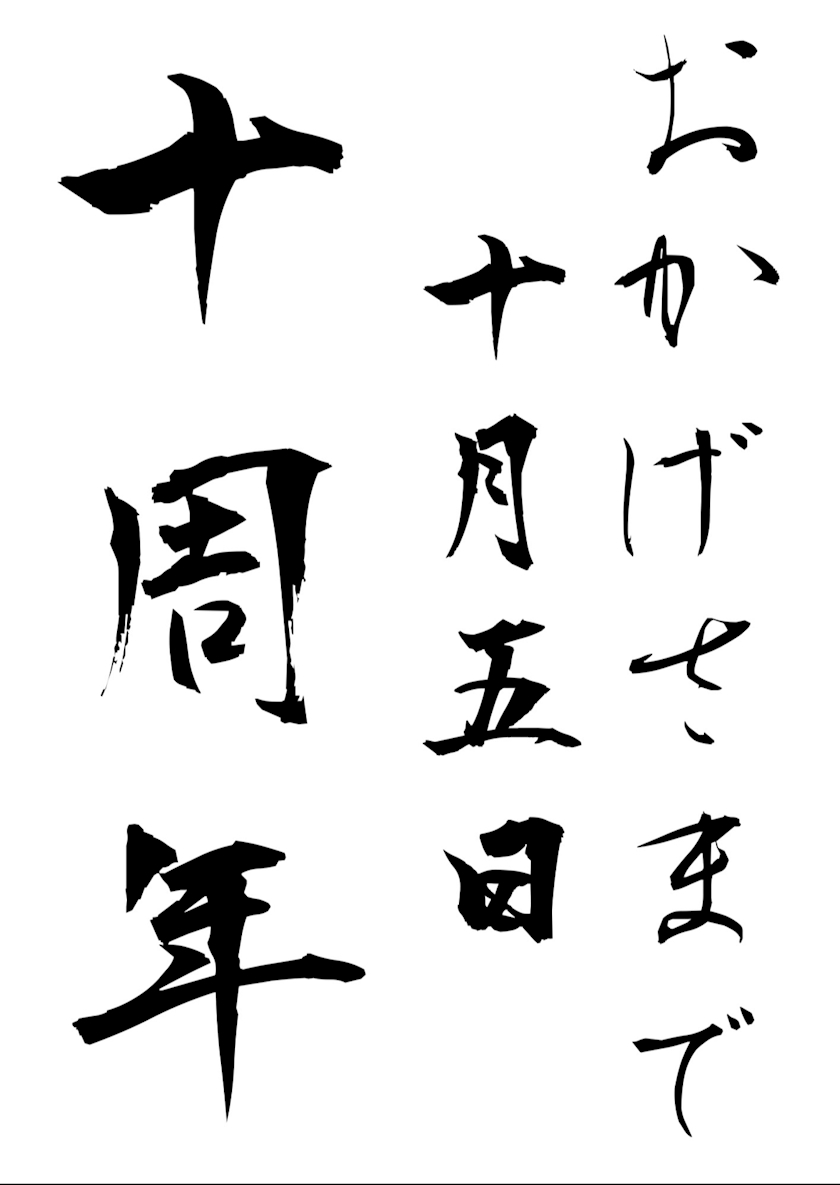 おかげさまで
十月五日
十周年